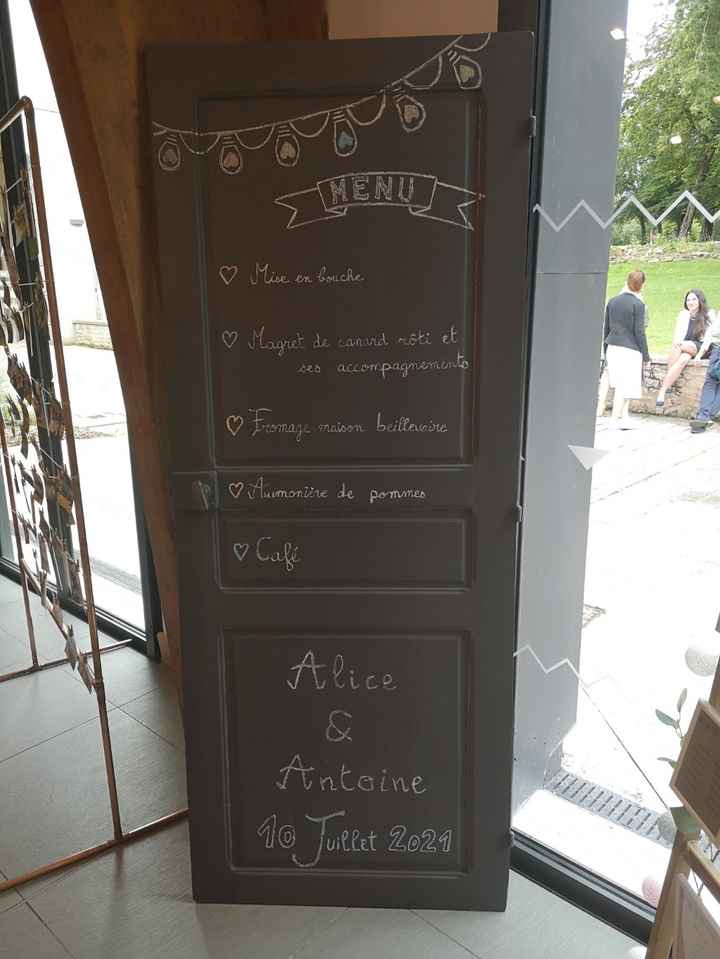 MENU
Mise en bouche
Magret de canard rôti et
ses accompagnements
Fromage maison beillevaire
Aumonière de pommes
Café
Alice
&
Antoine
10 Juillet 2021